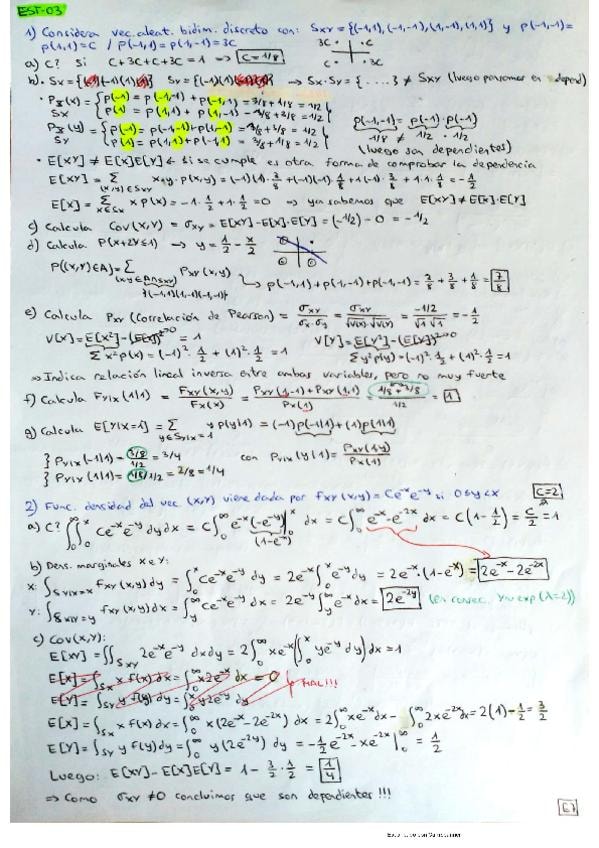 EST-03
1) Considera vec. aleat. bidim. discreto con: Sxy = {(-1,1), (-1,-1), (1,-1), (1,1)} y p(-1,-1) =
p(1,1) = C / p(-1,1) = p(1,-1) = 3C
3C · | · C
C · | · 3C
a) C? Si C+3C+C+3C = 1 → C = 1/8
b) · Sx = {(-1)(1)} Sy = {(-1)(1)} → Sx·Sy = {....} ≠ Sxy (luego pensamos en depend)
· Px(x) = { p(-1) = p(-1,-1) + p(-1,1) = 3/8 + 1/8 = 1/2
Sx { p(1) = p(1,1) + p(1,-1) = 1/8 + 3/8 = 1/2
Py(y) = { p(-1) = p(-1,-1) + p(1,-1) = 1/8 + 3/8 = 1/2
Sy { p(1) = p(1,1) + p(-1,1) = 3/8 + 1/8 = 1/2
p(-1,-1) = p(-1)·p(-1)
1/8 ≠ 1/2 · 1/2
(luego son dependientes)
· E[XY] ≠ E[X]E[Y] ← si se cumple es otra forma de comprobar la dependencia
E[XY] = Σ (x,y)∈Sxy x·y·p(x,y) = (-1)(1)·3/8 + (-1)(-1)·1/8 + 1(-1)·3/8 + 1·1·1/8 = -1/2
E[X] = Σ x∈Sx x p(x) = -1·1/2 + 1·1/2 = 0 → ya sabemos que E[XY] ≠ E[X]·E[Y]
c) Calcula Cov(X,Y) = σxy = E[XY] - E[X]·E[Y] = (-1/2) - 0 = -1/2
d) Calcula P(X+2Y≤1) → y = 1/2 - x/2
P((X,Y)∈A) = Σ (x,y)∈A∩Sxy Pxy(x,y) → p(-1,1) + p(-1,-1) + p(1,-1) = 3/8 + 1/8 + 3/8 = 7/8
{(-1,1)(1,-1)(-1,-1)}
e) Calcula ρxy (Correlación de Pearson) = σxy/σx·σy = σxy/√V(X)·√V(Y) = -1/2/√1 √1 = -1/2
V[X] = E[X²] - (E[X])² = 1 V[Y] = E[Y²] - (E[Y])² = 1
Σx²p(x) = (-1)²·1/2 + (1)²·1/2 = 1 Σy²p(y) = (-1)²·1/2 + (1)²·1/2 = 1
⇒ Indica relación lineal inversa entre ambas variables, pero no muy fuerte
f) Calcula FY|X(1|1) = FXY(x,y)/FX(x) = PXY(1,-1) + PXY(1,1)/PX(1) = 1/8 + 3/8 / 1/2 = 1
g) Calcula E[Y|X=1] = Σ y∈SY|X=1 y p(y|1) = (-1)p(-1|1) + (1)p(1|1)
} PY|X(-1|1) = 3/8 / 1/2 = 3/4 con PY|X(y|1) = PXY(1,y)/PX(1)
} PY|X(1|1) = 1/8 / 1/2 = 2/8 = 1/4
2) Func. densidad del vec. (X,Y) viene dada por fxy(x,y) = Ce⁻ˣe⁻ʸ si 0≤y<x C=2
a) C? ∫₀^∞∫₀ˣ Ce⁻ˣe⁻ʸ dy dx = C∫₀^∞ e⁻ˣ(-e⁻ʸ)|₀ˣ dx = C∫₀^∞ e⁻ˣ - e⁻²ˣ dx = C(1 - 1/2) = C/2 = 1
(1-e⁻ˣ)
b) Dens. marginales X e Y:
X: ∫SY|X=x fxy(x,y) dy = ∫₀ˣ Ce⁻ˣe⁻ʸ dy = 2e⁻ˣ∫₀ˣ e⁻ʸ dy = 2e⁻ˣ·(1-e⁻ˣ) = 2e⁻ˣ - 2e⁻²ˣ
Y: ∫SX|Y=y fxy(x,y) dx = ∫y^∞ Ce⁻ˣe⁻ʸ dx = 2e⁻ʸ∫y^∞ e⁻ˣ dx = 2e⁻²ʸ (en consec. Y~exp(λ=2))
c) Cov(X,Y):
E[XY] = ∫∫Sxy 2e⁻ˣe⁻ʸ dx dy = 2∫₀^∞ xe⁻ˣ(∫₀ˣ ye⁻ʸ dy) dx = 1
E[X] = ∫Sx x f(x) dx = ∫₀^∞ x2e⁻ˣ dx = 0
E[Y] = ∫Sy y f(y) dy = y2e⁻²ʸ dy
MAL!!!
E[X] = ∫Sx x f(x) dx = ∫₀^∞ x(2e⁻ˣ - 2e⁻²ˣ) dx = 2∫₀^∞ xe⁻ˣ dx - ∫₀^∞ 2xe⁻²ˣ dx = 2(1) - 1/2 = 3/2
E[Y] = ∫Sy y f(y) dy = ∫₀^∞ y(2e⁻²ʸ) dy = -1/2 e⁻²ˣ - xe⁻²ˣ|₀^∞ = 1/2
Luego: E[XY] - E[X]E[Y] = 1 - 3/2·1/2 = 1/4
⇒ Como σxy ≠ 0 concluimos que son dependientes !!!